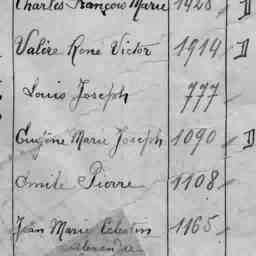 Charles François Marie 1428 D
Valère René Victor 1914 D
Louis Joseph 777
Eugène Marie Joseph 1090 D
Emile Pierre 1108
Jean Marie Celestin 1165
Alexandre